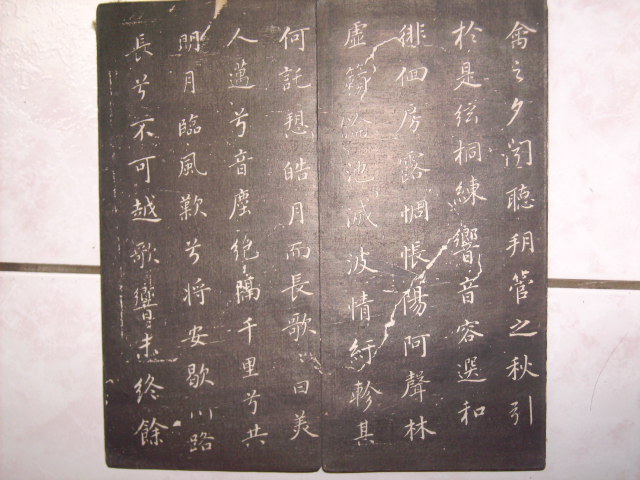 禽之夕聞聽朔管之秋引
於是絃桐練響音容選和
徘徊房露惆悵陽阿聲林
虛籟淪池滅波情紆軫其
何託想皓月而長歌曰美
人邁兮音塵絶隔千里兮共
明月臨風歎兮將安歇川路
長兮不可越歌響未終餘